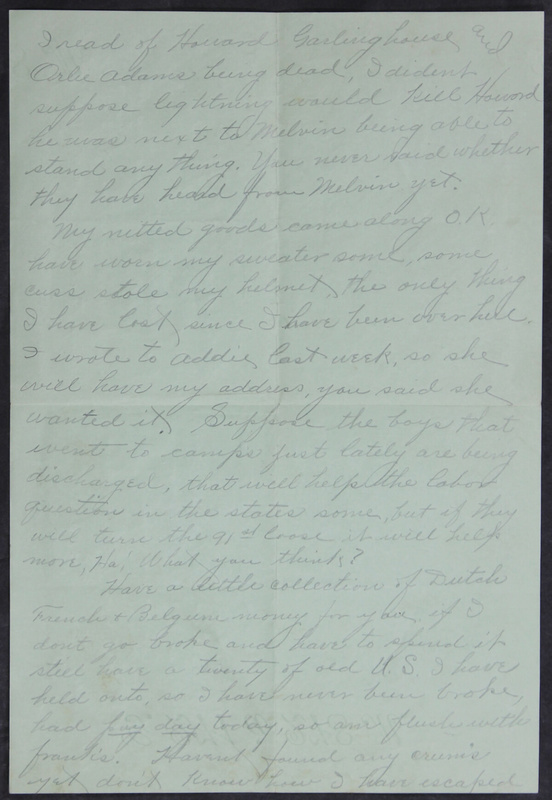 I read of Howard Garlinghouse and
Orlie Adams being dead, I dident
suppose lightning would kill Howard
he was next to Melvin being able to
stand any thing. You never said whether
they have heard from Melvin yet.
My nitted goods came along O.K.
have worn my sweater some, some
cuss stole my helmet, the only thing
I have lost since I have been over here.
I wrote to Addie last week, so she
will have my address, you said she
wanted it. Suppose the boys that
went to camps just lately are being
discharged, that will help the labor
question in the states some, but if they
will turn the 91st loose it will help
more, Ha! What you think?
Have a little collection of Dutch
French & Belgium money for you if I
dont go broke and have to spend it
still have a twenty of old U.S. I have
held onto, so I have never been broke,
had pay day today, so am flush with
franks. Havent found any crums
yet dont know how I have escaped